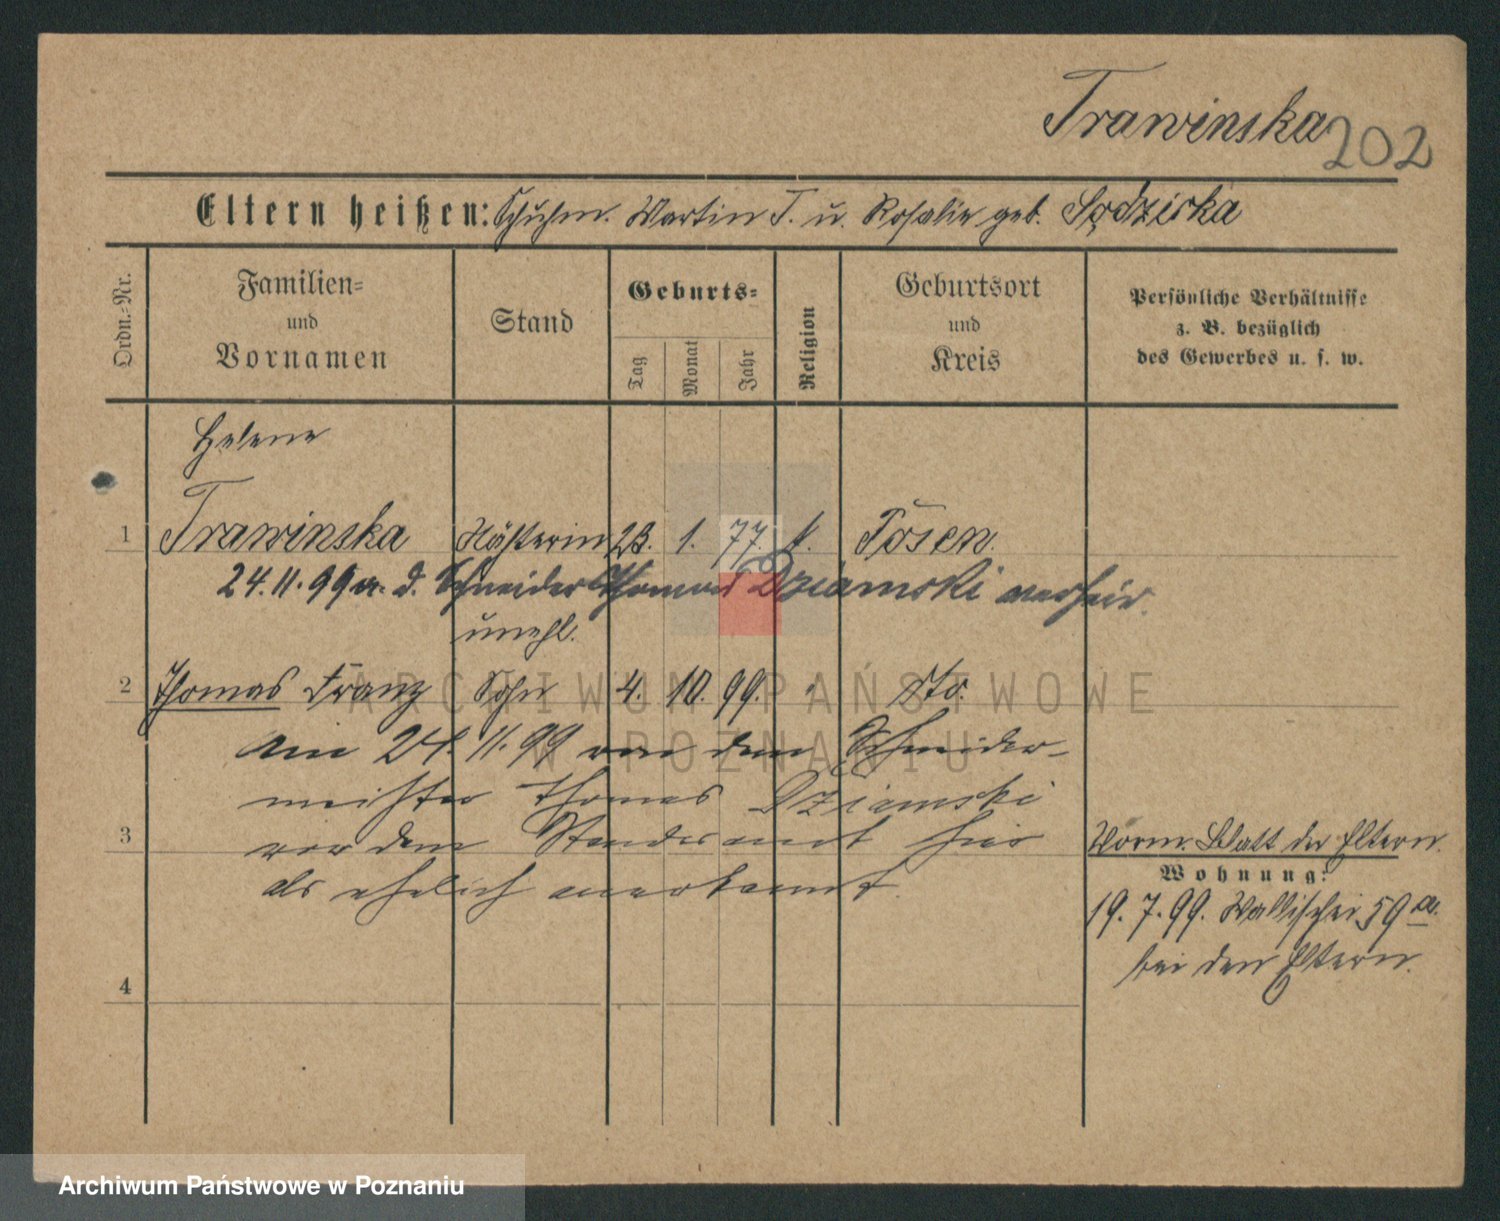 Trawinska
202
Eltern heißen: Schuhm. Martin T. u. Rosalie geb. Sodzirka
Ordn.-Nr.
Familien-
und
Vornamen
Stand
Geburts-
Tag
Monat
Jahr
Religion
Geburtsort
und
Kreis
Persönliche Verhältnisse
z. B. bezüglich
des Gewerbes u. s. w.
Helene
1 Trawinska Nähterin 23. 1. 77. k. Posen.
24.11.99 m. d. Schneider Thomas Dziamski verheir.
unehl.
2 Thomas Franz Sohn 4. 10. 99. " dto.
Am 24. 11. 99 von dem Schneider-
meister Thomas Dziamski
3 vor dem Standesamt hier
als ehelich anerkannt.
4
Vorm. Blatt der Eltern.
Wohnung:
19. 7. 99. Wallischei 59 a.
bei den Eltern.
ARCHIWUM PAŃSTWOWE
W POZNANIU
Archiwum Państwowe w Poznaniu